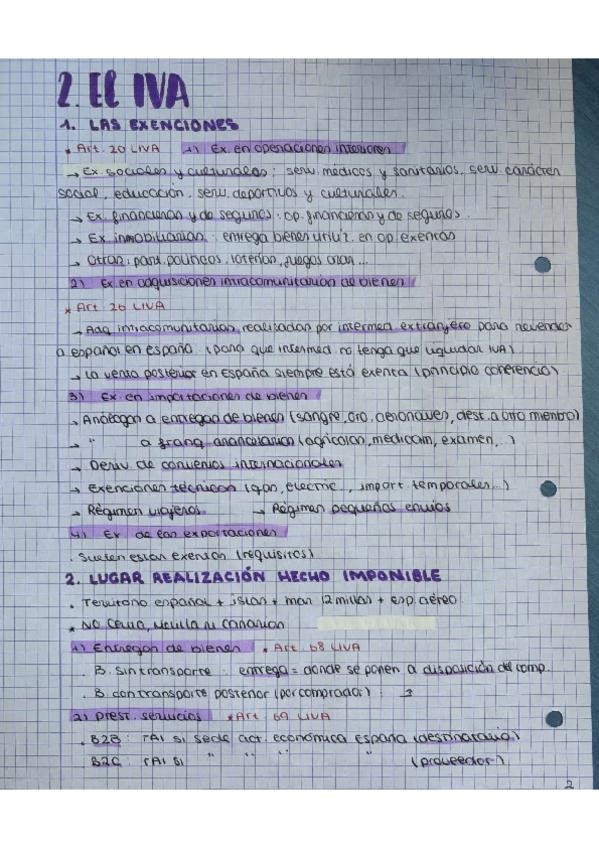 2. El IVA
1. LAS EXENCIONES
* Art. 20 LIVA 1) Ex. en operaciones interiores
→ Ex. sociales y culturales : serv. médicos y sanitarios, serv. carácter
social, educación, serv. deportivos y culturales.
→ Ex. financieras y de seguros : op. financieras y de seguros.
→ Ex. inmobiliarias : entrega bienes utiliz. en op exentas
→ Otras : part. políticos, loterías, juegos azar ...
2) Ex. en adquisiciones intracomunitarias de bienes
* Art. 26 LIVA
→ Adq intracomunitarias realizadas por intermed. extranjero para revender
a español en españa (para que intermed. no tenga que liquidar IVA)
→ La venta posterior en España siempre está exenta (principio coherencia)
3) Ex. en importaciones de bienes
→ Análogas a entregas de bienes (sangre, oro, aeronaves, dest. a otro miembro)
→ " a franq. arancelarias (agrícolas, medicam, examen, ..)
→ Deriv. de convenios internacionales
→ Exenciones técnicas (gas, electric..., import. temporales..)
→ Régimen viajeros → Régimen pequeños envíos
4) Ex. de las exportaciones
. Suelen estar exentas (requisitos)
2. LUGAR REALIZACIÓN HECHO IMPONIBLE
. Territorio español + islas + mar 12 millas + esp. aéreo
* NO Ceuta, Melilla ni Canarias
1) Entregas de bienes * Art. 68 LIVA
. B. sin transporte : entrega = donde se ponen a disposición del comp.
. B. con transporte posterior (por comprador) :
2) Prest. servicios * Art. 69 LIVA
. B2B : TAI si sede act. económica españa (destinatario)
. B2C : TAI si " " " " (proveedor)
2